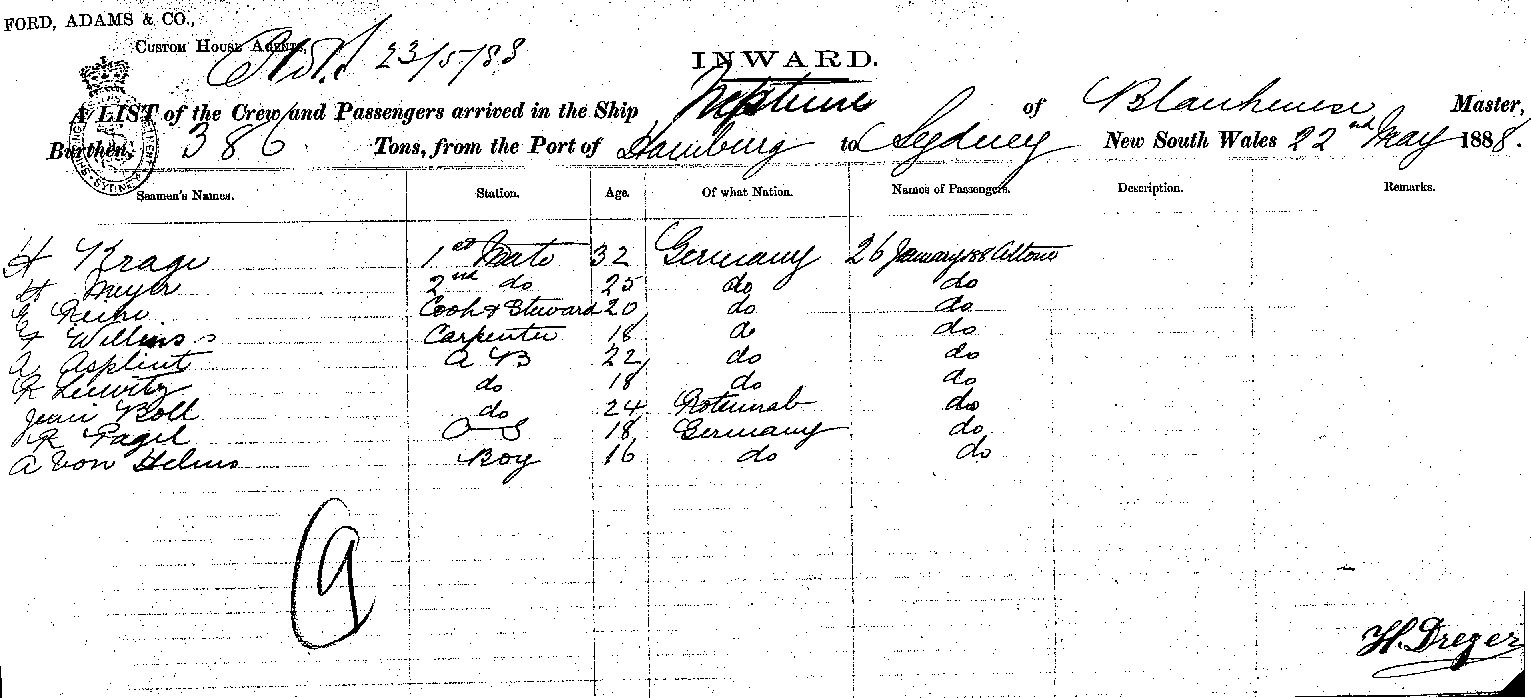 FORD, ADAMS & CO.,
CUSTOM HOUSE AGENTS,
23/5/88
INWARD.
A LIST of the Crew and Passengers arrived in the Ship Neptune of Blankenese Master,
Burthen, 386 Tons, from the Port of Hamburg to Sydney New South Wales 22nd May 1888.
Seamen's Names. Station. Age. Of what Nation. Names of Passengers. Description. Remarks.
H Krage 1st Mate 32 Germany 26 January 188 Altona
H Meyer 2nd do 25 do do
Cook & Steward 20 do do
Carpenter 18 do do
A Asplint A B 22 do do
do 18 do do
Jean Boll do 24 do
R Pagel O S 18 Germany do
A von Helms Boy 16 do do
9
H. Dreyer